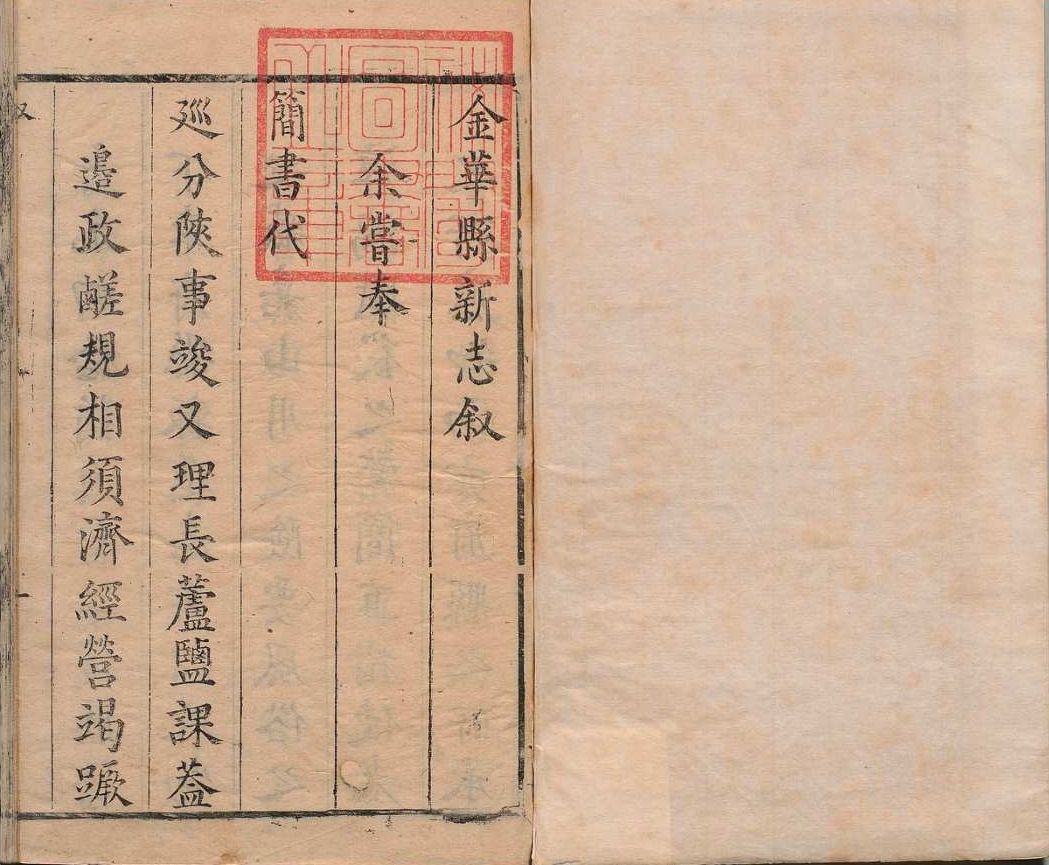 金華縣新志叙
余嘗奉
簡書代
廵分陝事竣又理長蘆鹽課蓋
邉政鹺規相須濟經營竭蹶
叙